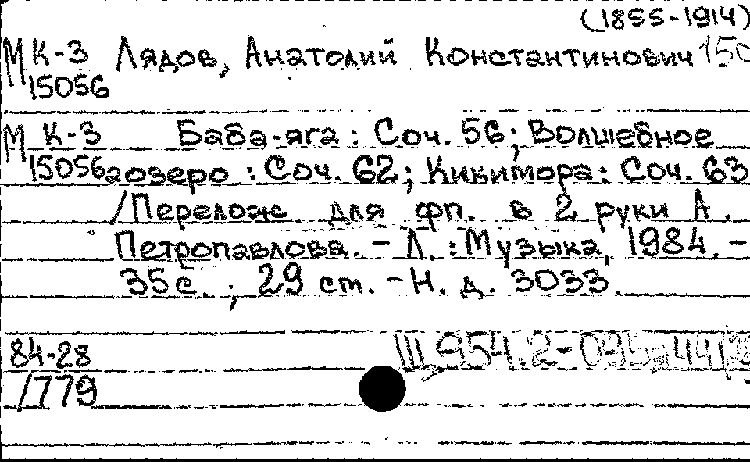 (1855-1914)
М К-3 Лядов, Анатолий Константинович 150
15056
М К-3 Баба-яга : Соч. 56; Волшебное
15056 озеро : Соч. 62; Кикимора: Соч. 63
/Перелож. для фп. в 2 руки А.
Петропавлова. – Л. : Музыка, 1984. –
35 с. ; 29 см. – Н. д. 3033.
84-28
/779